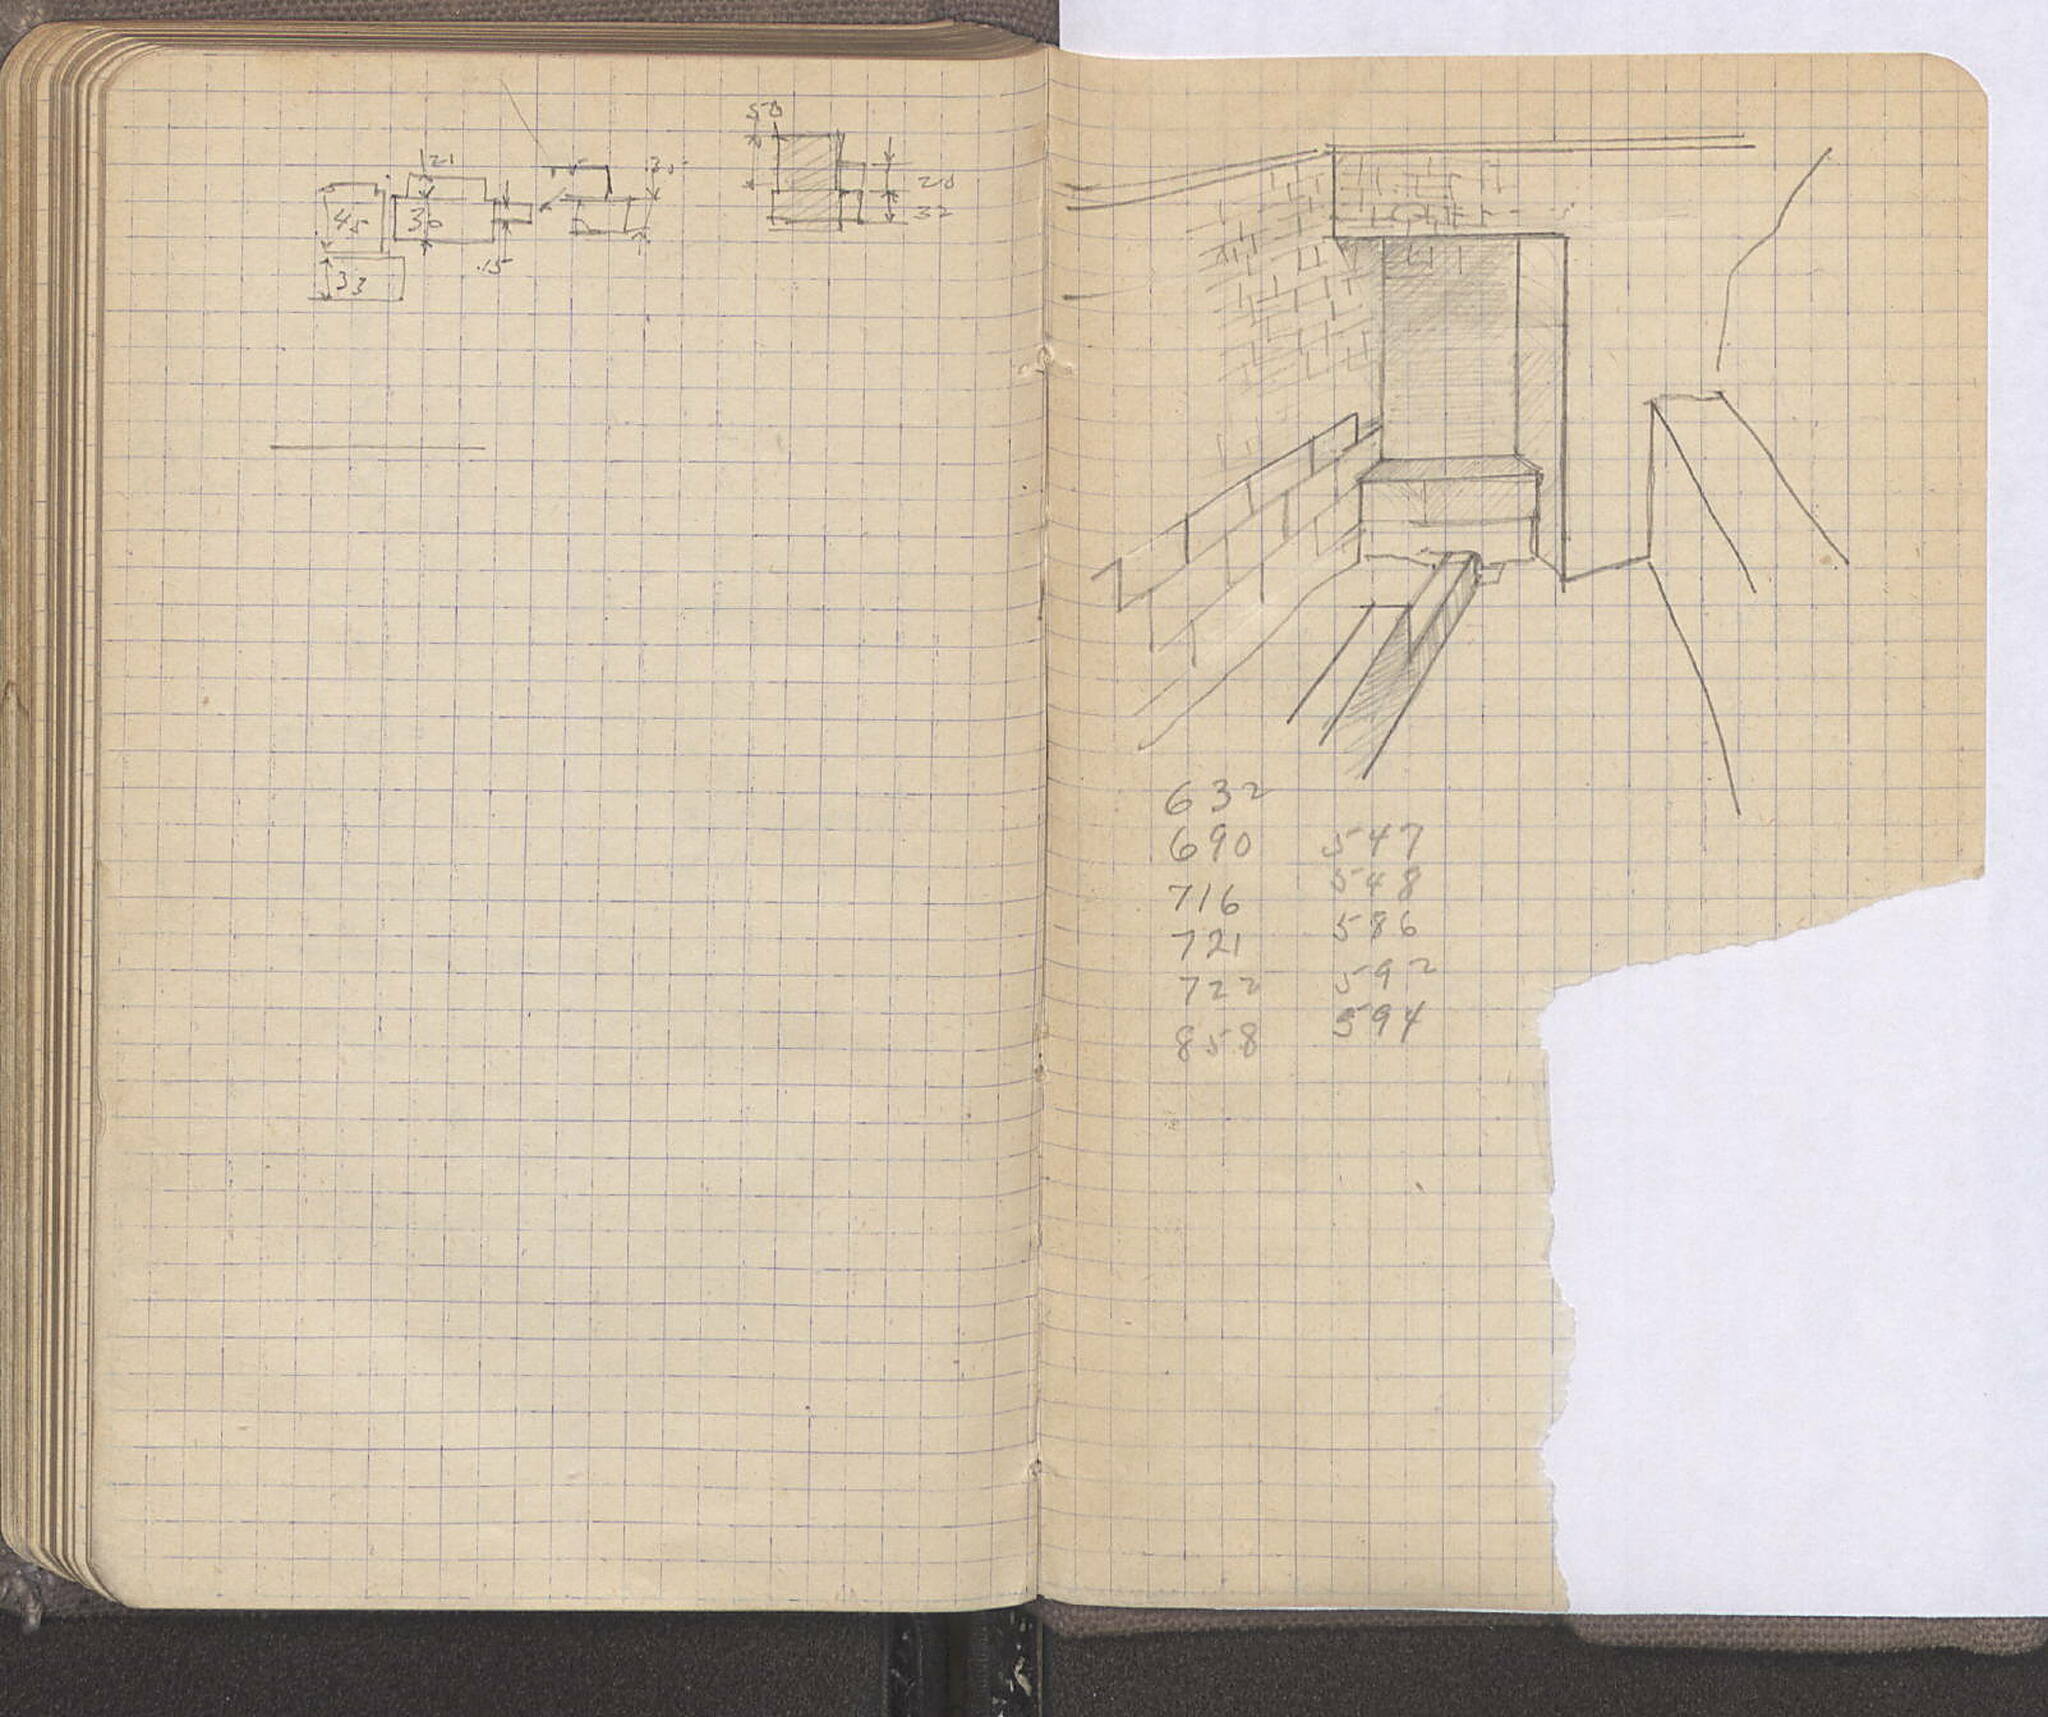 50
21
45
30
20
32
.15
33
632
690
716
721
722
858
547
548
586
592
594